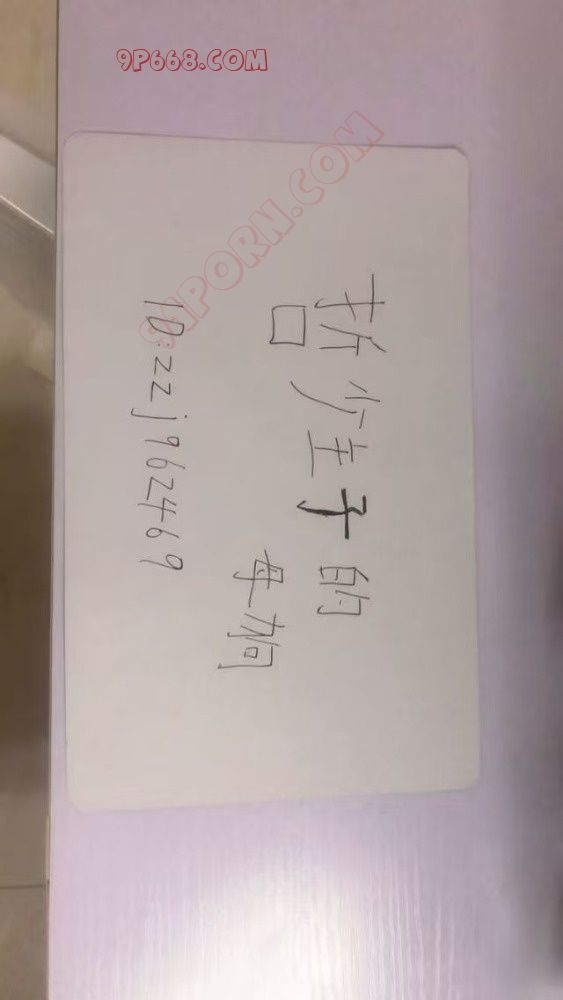 9P668.COM
91PORN.COM
哲少主子的
母狗
ID:zzj962469